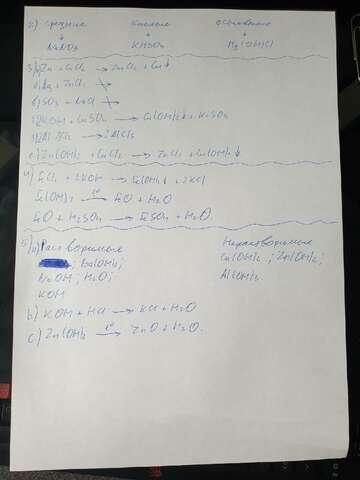 2) средние кислые основные
↓ ↓ ↓
NaNO3 KHSO4 Mg(OH)Cl
3) а) Zn + CuCl2 → ZnCl2 + Cu↓
б) Ag + ZnCl2
в) SO3 + NaCl
г) 2KOH + CuSO4 → Cu(OH)2↓ + K2SO4
д) 2Al 3Cl2 → 2AlCl3
е) Zn(OH)2 + CuCl2 → ZnCl2 + Cu(OH)2↓
4) FeCl2 + 2KOH → Fe(OH)2↓ + 2KCl
Fe(OH)2 t° → FeO + H2O
FeO + H2SO4 → FeSO4 + H2O.
5) а) Растворимые Нерастворимые
Ba(OH)2; Cu(OH)2; Zn(OH)2;
NaOH; H2O; Al(OH)3.
KOH
b) KOH + HCl → KCl + H2O
c) Zn(OH)2 t° → ZnO + H2O.